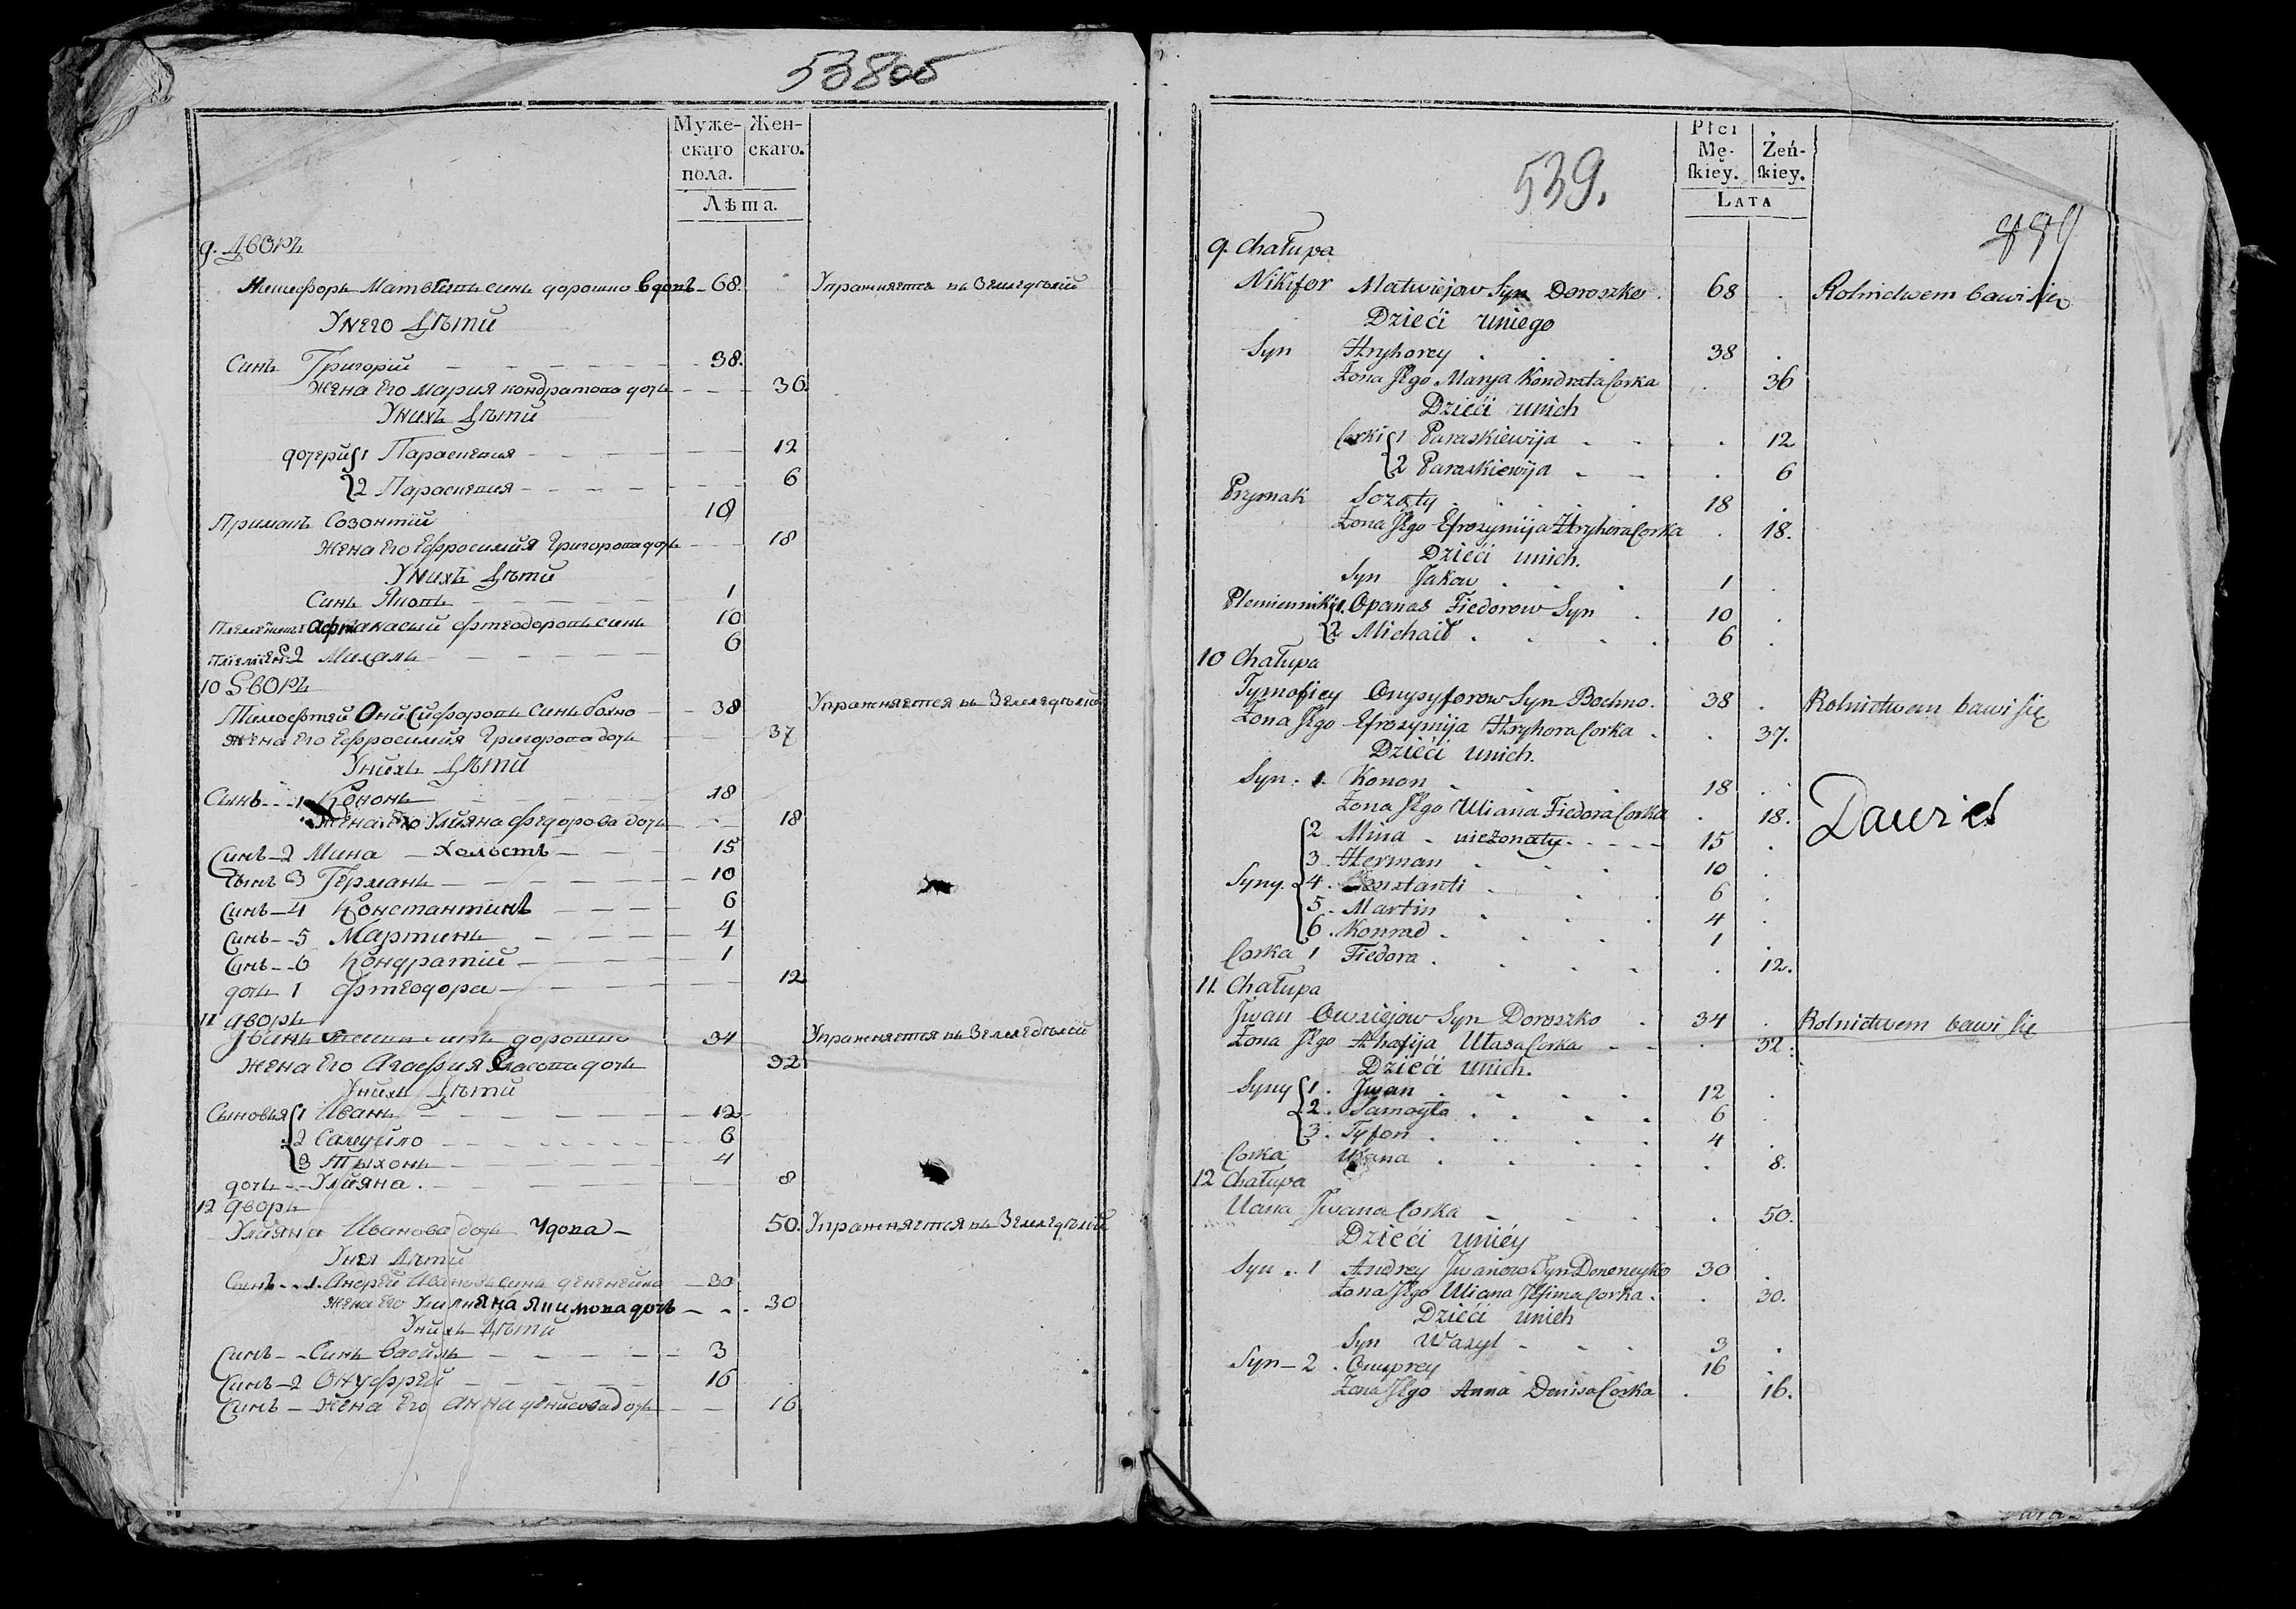 538об
Муже-
скаго
пола.
Жен-
скаго.
Лѣта.
9. Дворъ
Никифоръ Матвѣевъ синъ дорошко вдовъ 68. Упражняется въ Земледѣлій
У него Дѣти
Синъ Григорій 38.
Жена Его Мария кондратова дочь 36
У нихъ Дѣти
дочери 1 Параскевия 12
2 Параскевия 6
Примакъ Созонтій 18
Жена Его Ефросимия Григорова дочь 18
У нихъ Дѣти
Синъ Яковъ 1
Афтанасий Фтеодоровъ синъ 10
2 Михалъ 6
10 Дворъ
Тимофтей Онисифоровъ Синъ бохно 38 Упражняется въ Земледѣлій
Жена Его Ефросимия Григорова дочь 37
У нихъ Дѣти
Сынъ 1 Кононъ 18
Жена Его Улияна Федорова дочь 18
Синъ 2 Мина Холостъ 15
Сынъ 3 Германъ 10
Синъ 4 Константинъ 6
Синъ 5 Мартинъ 4
Синъ 6 Кондратій 1
дочь 1 Фтеодора 12
11 дворъ
Иванъ синъ дорошко 34 Упражняется въ Земледѣлій
Жена Его Агафия Власова дочь 32
У нихъ Дѣти
Сыновья 1 Иванъ 12
2 Самуйло 6
3 Тыхонъ 4
дочь Улияна 8
12 дворъ
Улияна Иванова дочь Удова 50. Упражняется въ Земледѣлій
У нея Дѣти
Сынъ 1. Андрей Ивановъ синъ 30
Жена Его Улияна Якимова дочь 30
У нихъ Дѣти
Синъ Синъ Василь 3
Синъ 2 Онуфрей 16
Синъ Жена Его Анна денисова дочь 16
539.
Płci
Mę-
skiey.
Żeń-
skiey.
LATA
9. Chałupa
Nikifor Matwiejow Syn Doroszko. 68 Rolnictwem bawi się
Dzieći uniego
Syn Hryhorey 38
Żona Jego Marya Kondrata Corka 36
Dzieći unich
Corki 1 Paraskiewija 12
2 Paraskiewija 6
Prymak Soząty 18
Żona Jego Efrozymija Hryhora Corka 18.
Dzieći unich.
Syn Jakow 1
Plemienniki 1. Opanas Fiedorow Syn 10
2 Michaił 6
10 Chałupa
Tymofiey Onysyforow Syn Bochno. 38 Rolnictwem bawi się
Żona Jego Efrozymija Hryhora Corka 37.
Dzieći unich.
Syn. 1. Konon 18
Żona Jego Uliana Fiedora Corka 18. Dawid
2 Mina nieżonaty 15
3. Herman 10
Syny. 4. Konstanti 6
5. Martin 4
6. Konrad 1
Corka 1 Fiedora 12.
11. Chałupa
Jwan Owsiejow Syn Doroszko 34 Rolnictwem bawi się
Żona Jego Ahafija Ułasa Corka 32.
Dzieći unich.
Syny 1. Jwan 12
2. Samoyło 6
3. Tyfon 4
Corka Ulana 8.
12 Chałupa
Ulana Jwana Corka 50.
Dzieći uniéy
Syn. 1 Andrey Jwanow Syn Doneneyko 30
Żona Jego Uliana Jefima Corka. 30.
Dzieći unich
Syn Wasyl 3
Syn 2. Onuprey 16
Żona Jego Anna Denisa Corka 16.